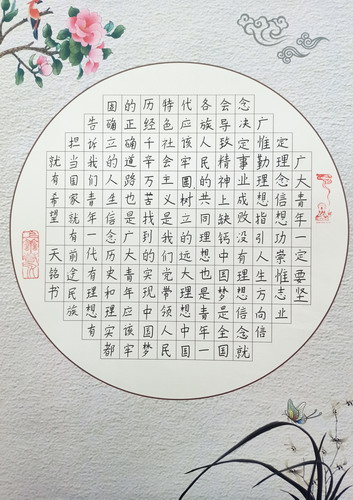 广大青年一定要坚
定理想信念功崇惟志业
广惟勤理想指引人生方向信
念决定事业成败没有理想信念就
会导致精神上缺钙中国梦是全国
各族人民的共同理想也是青年一
代应该牢固树立的远大理想中国
特色社会主义是我们党带领人民
历经千辛万苦找到的实现中国梦
的正确道路也是广大青年应该牢
固确立的人生信念历史和现实都
告诉我们青年一代有理想有
担当国家就有前途民族
就有希望 天铭书